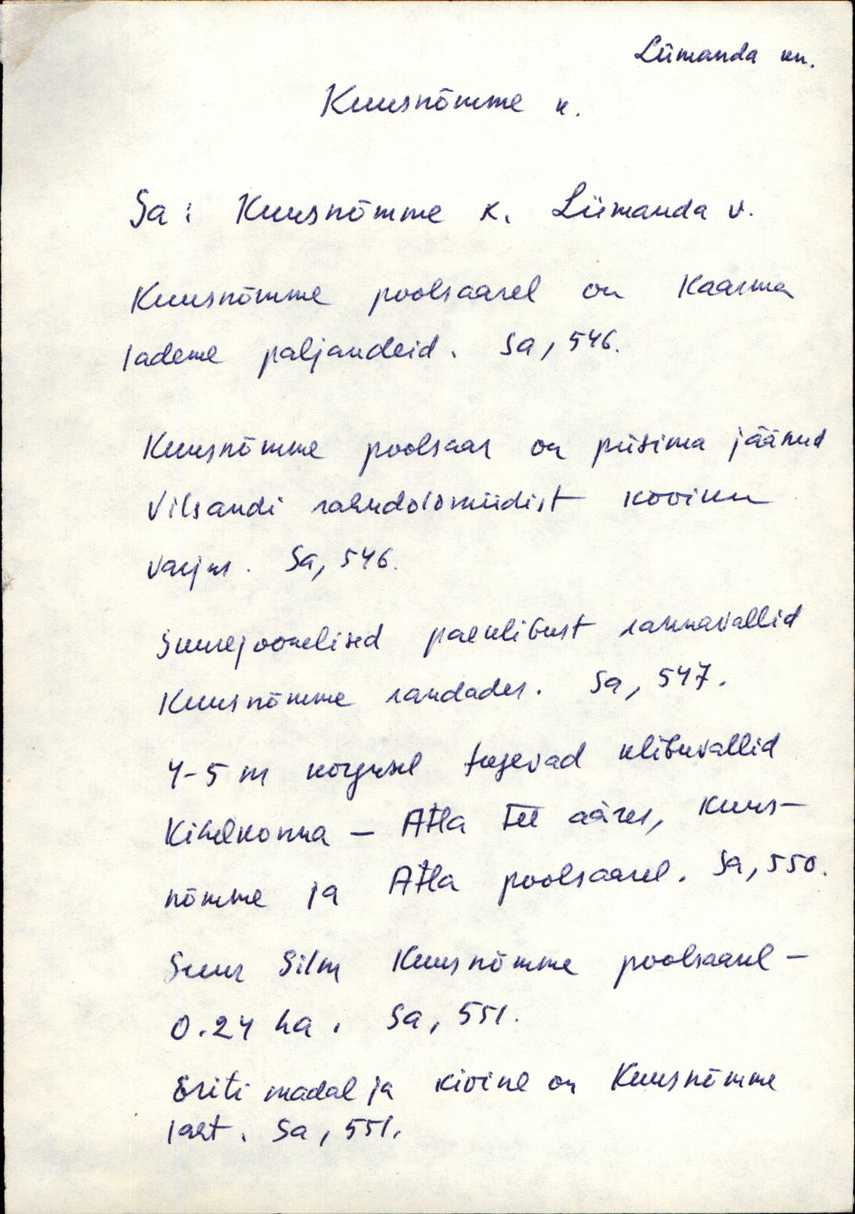 Liimanda kn.
Kuusnõmme k.
Sa: Kuusnõmme k. Liimanda v.
Kuusnõmme poolsaarel on Kaarma
lademe paljandeid. Sa, 546.
Kuusnõmme poolsaar on püsima jäänud
Vilsandi rahudolomiidist kooriku
varjus. Sa, 546.
Suurejoonelised paeklibust rannavallid
Kuusnõmme randades. Sa, 547.
4-5 m kõrgusel tugevad klibuvallid
Kihelkonna - Atla tee ääres, Kuus-
nõmme ja Atla poolsaarel. Sa, 550.
Suur Silm Kuusnõmme poolsaarel -
0.24 ha. Sa, 551.
Eriti madal ja kivine on Kuusnõmme
laht. Sa, 551.